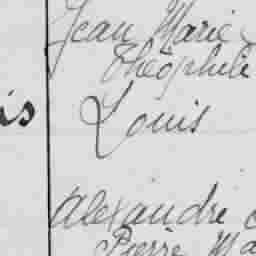 Jean Marie
Théophile
Louis
is
Alexandre
Pierre Ma